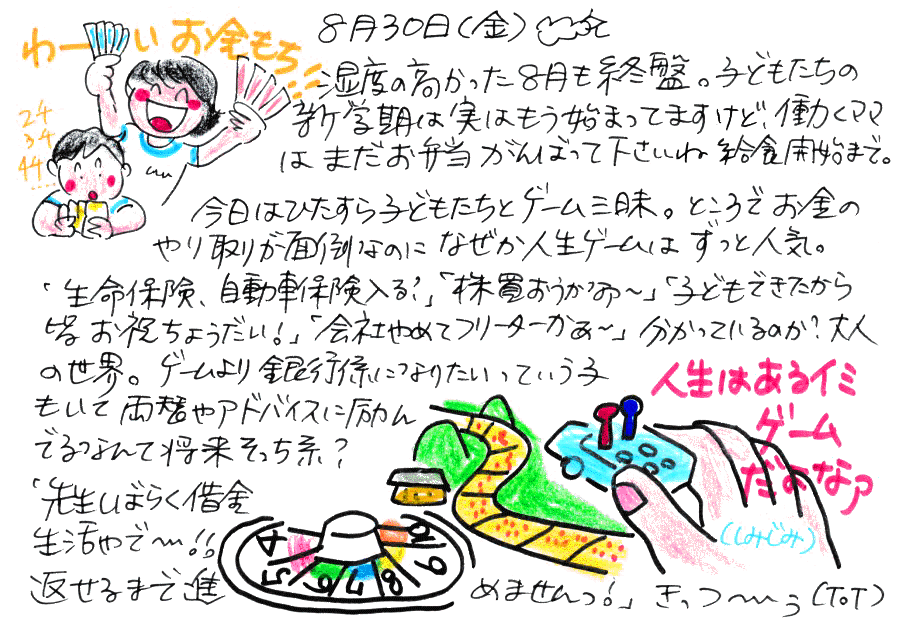 わーい お金もち
8月30日(金)
24
34
44…
湿度の高かった8月も終盤。子どもたちの
新学期は実はもう始まってますけど、働くママ
はまだお弁当がんばって下さいね給食開始まで。
今日はひたすら子どもたちとゲーム三昧。ところでお金の
やり取りが面倒なのになぜか人生ゲームはずっと人気。
「生命保険、自動車保険入る?」「株買おうかなァ〜」「子どもできたから
皆お祝ちょうだい!」「会社やめてフリーターかぁ〜」分かっているのか?大人
の世界。ゲームより銀行係になりたいっていう子
もいて両替やアドバイスに励ん
でるなんて将来そっち系?
人生はあるイミ
ゲーム
だよなァ
(しみじみ)
「先生しばらく借金
生活やで〜!!
4 5 6 7 8 9 10
返せるまで進めませんっ!」きっつ〜〜う(ToT)